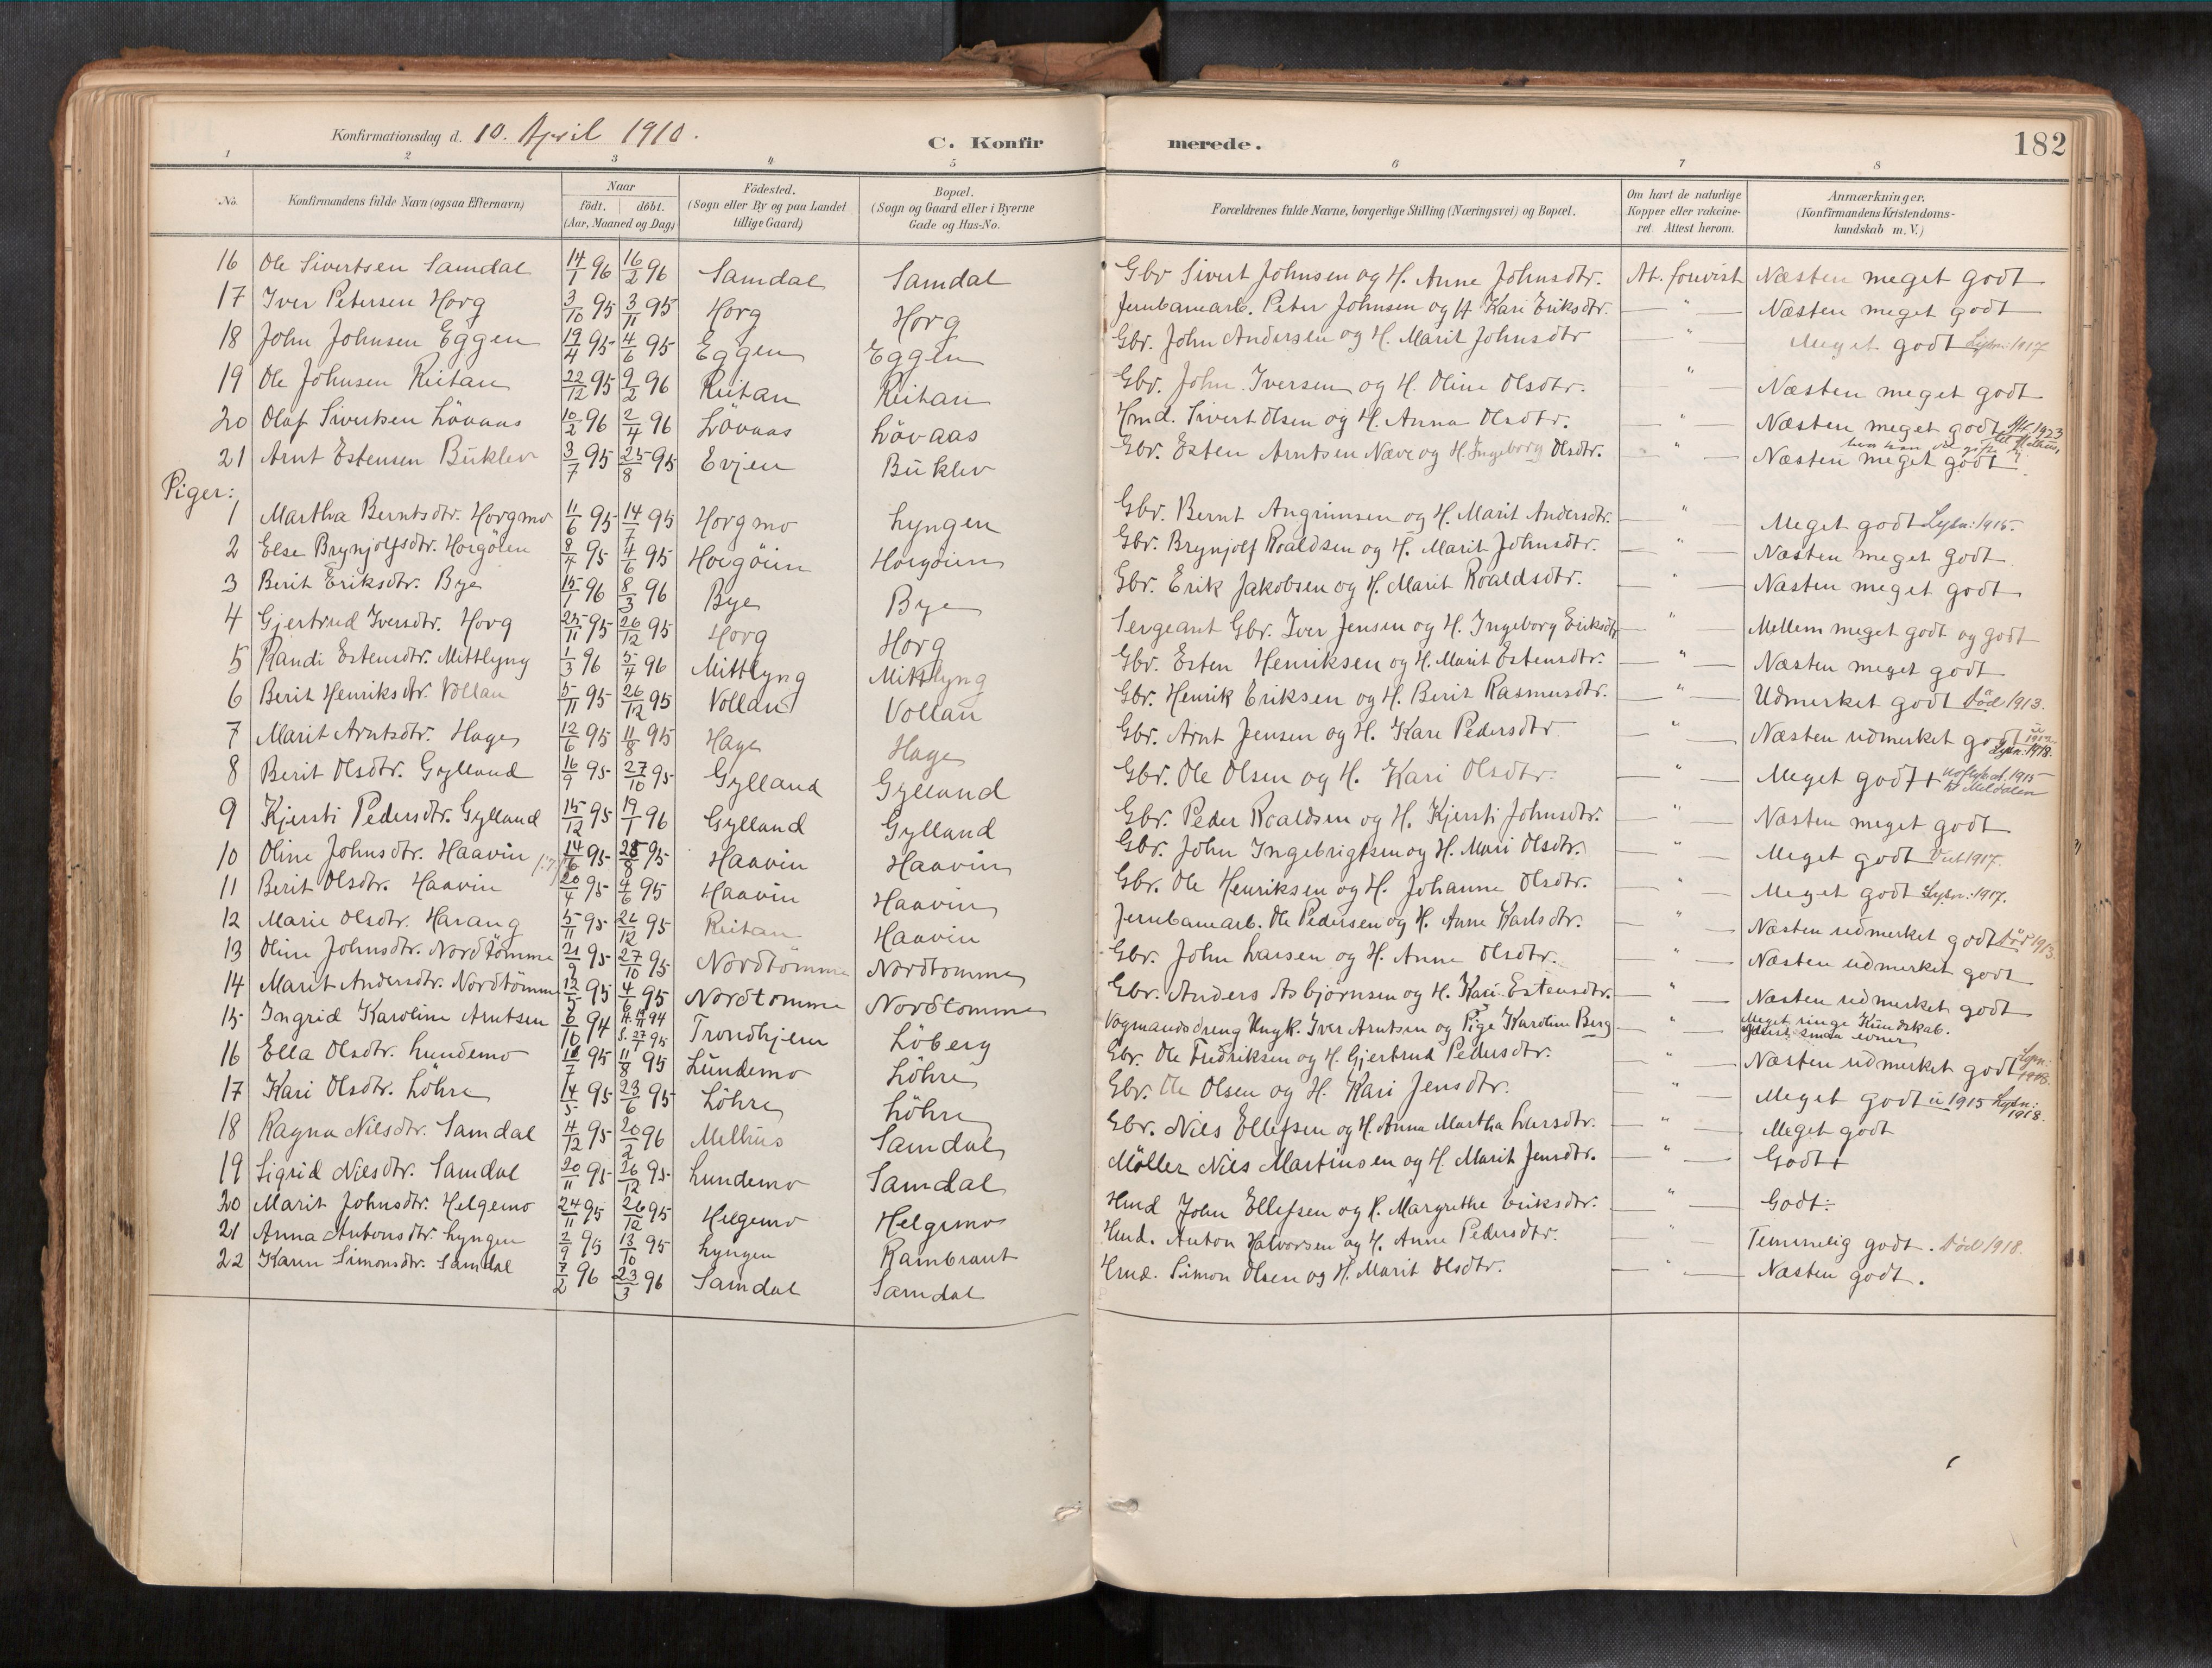 Konfirmationsdag d. 10. April 1910. C. Konfirmerede. 182
1 2 3 4 5 6 7 8
No. Konfirmandens fulde Navn (ogsaa Efternavn) Naar födt. döbt. (Aar, Maaned og Dag) Födested. (Sogn eller By og paa Landet tillige Gaard) Bopæl. (Sogn og Gaard eller i Byerne Gade og Hus-No. Forældrenes fulde Navne, borgerlige Stilling (Næringsvei) og Bopæl. Om havt de naturlige Kopper eller vakcineret. Attest herom. Anmærkninger. (Konfirmandens Kristendomskundskab m. V.)
16 Ole Sivertsen Samdal 14/1 96 16/2 96 Samdal Samdal Gbr Sivert Johnsen og H. Anne Johnsdtr. At. forevist Næsten meget godt
17 Iver Petersen Horg 3/10 95 3/11 95 Horg Horg Jernbanearb. Peter Johnsen og H Kari Eriksdtr. — " — Næsten meget godt
18 John Johnsen Eggen 19/4 95 4/6 95 Eggen Eggen Gbr. John Andersen og H. Marit Johnsdtr. — " — Meget godt Lysn: 1917
19 Ole Johnsen Reitan 22/12 95 9/2 96 Reitan Reitan Gbr. John Iversen og H. Oline Olsdtr. — " — Næsten meget godt
20 Olaf Sivertsen Lövaas 10/2 96 2/4 96 Lövaas Lövaas Hmd. Sivert Olsen og H. Anna Olsdtr. — " — Næsten meget godt Att. 1923
21 Arnt Estensen Buklev 3/7 95 25/8 95 Evjen Buklev Gbr. Esten Arntsen Næve og H. Ingeborg Olsdtr. — " — Næsten meget godt
Piger:
1 Martha Berntsdtr. Horgmo 11/6 95 14/7 95 Horgmo Lyngen Gbr. Bernt Angrimsen og H. Marit Andersdtr. — " — Meget godt Lysn: 1915.
2 Else Brynjolfsdtr. Horgöien 8/4 95 4/6 95 Horgöien Horgöien Gbr. Brynjolf Roaldsen og H. Marit Johnsdtr. — " — Næsten meget godt
3 Berit Eriksdtr. Bye 15/1 96 8/3 96 Bye Bye Gbr. Erik Jakobsen og H. Marit Roaldsdtr. — " — Næsten meget godt
4 Gjertrud Iversdtr. Horg 25/11 95 26/12 95 Horg Horg Sergeant Gbr. Iver Jensen og H. Ingeborg Eriksdtr — " — Mellem meget godt og godt
5 Randi Estensdtr. Mittlyng 1/3 96 5/4 96 Mittlyng Mittlyng Gbr. Esten Henriksen og H. Marit Estensdtr. — " — Næsten meget godt
6 Berit Henriksdtr. Vollan 5/11 95 26/12 95 Vollan Vollan Gbr. Henrik Eriksen og H. Berit Rasmusdtr. — " — Udmerket godt Död 1913.
7 Marit Arntsdtr. Hage 12/6 95 11/8 95 Hage Hage Gbr. Arnt Jensen og H. Kari Pedersdtr — " — Næsten udmerket godt Lysn: 1918.
8 Berit Olsdtr. Gylland 16/9 95 27/10 95 Gylland Gylland Gbr. Ole Olsen og H. Kari Olsdtr. — " — Meget godt+ 1915 til Meldalen
9 Kjersti Pedersdtr. Gylland 15/12 95 19/1 96 Gylland Gylland Gbr. Peder Roaldsen og H. Kjersti Johnsdtr. — " — Næsten meget godt
10 Oline Johnsdtr. Haavin 14/6 95 25/8 95 Haavin Haavin Gbr. John Ingebrigtsen og H. Mari Olsdtr. — " — Meget godt 1917.
11 Berit Olsdtr. Haavin 20/4 95 4/6 95 Haavin Haavin Gbr. Ole Henriksen og H. Johanne Olsdtr. — " — Meget godt Lysn: 1917.
12 Marie Olsdtr. Harang 5/11 95 26/12 95 Reitan Haavin Jernbanearb. Ole Pedersen og H. Anne Karlsdtr. — " — Næsten udmerket godt Död 1913.
13 Oline Johnsdtr. Nordtömme 21/9 95 27/10 95 Nordtömme Nordtomme Gbr. John Larsen og H. Anne Olsdtr. — " — Næsten udmerket godt
14 Marit Andersdtr. Nordtömme 12/5 95 4/6 95 Nordtomme Nordtomme Gbr. Anders Asbjørnsen og H. Kari Estensdtr. — " — Næsten udmerket godt
15 Ingrid Karoline Arntsen 6/10 94 Trondhjem Löberg Vogmandsdreng Ungk. Iver Arntsen og Pige Karoline Berg — " — Meget ringe Kundskab. smaa evner
16 Ella Olsdtr. Lundemo 18/7 95 11/8 95 Lundemo Löhre Gbr. Ole Fredriksen og H. Gjertrud Pedersdtr. — " — Næsten udmerket godt Lysn: 1918.
17 Kari Olsdtr. Löhre 14/5 95 23/6 95 Löhre Löhre Gbr. Ole Olsen og H. Kari Jensdtr. — " — Meget godt u 1915 Lysn: 1918.
18 Ragna Nilsdtr. Samdal 4/12 95 20/2 96 Melhus Samdal Gbr. Nils Ellefsen og H. Anna Martha Larsdtr. — " — Meget godt
19 Sigrid Nilsdtr. Samdal 20/11 95 26/12 95 Lundemo Samdal Möller Nils Martinsen og H. Marit Jensdtr. — " — Godt+
20 Marit Johnsdtr. Helgemo 24/11 95 26/12 95 Helgemo Helgemo Hmd John Ellefsen og H. Margrethe Eriksdtr. — " — Godt÷
21 Anna Antonsdtr. Lyngen 2/9 95 13/10 95 Lyngen Rambraut Hmd. Anton Halvorsen og H. Anne Pedersdtr. — " — Temmelig godt. Död 1918.
22 Karen Simonsdtr. Samdal 7/2 96 23/3 96 Samdal Samdal Hmd. Simon Olsen og H. Marit Olsdtr. — " — Næsten godt.